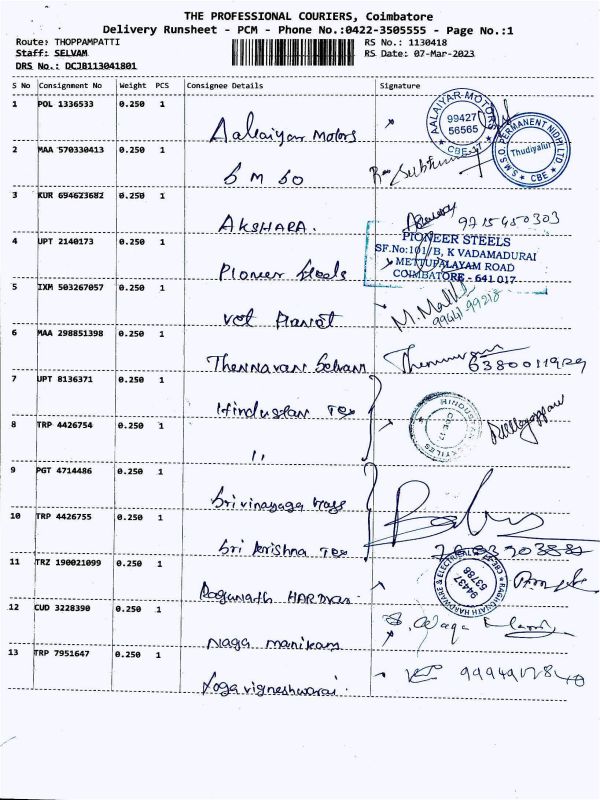 THE PROFESSIONAL COURIERS, Coimbatore
Delivery Runsheet - PCM - Phone No.:0422-3505555 - Page No.:1
Route: THOPPAMPATTI RS No.: 1130418
Staff: SELVAM RS Date: 07-Mar-2023
DRS No.: DCJB113041801
S No Consignment No Weight PCS Consignee Details Signature
1 POL 1336533 0.250 1
Aalaiyar Motors
AALAIYAR MOTORS
99427
56565
CBE-17
2 MAA 570330413 0.250 1
S M S O
S.M.S.O. PERMANENT NIDHI LTD
Thudiyalur
CBE
3 KUR 694623682 0.250 1
AKSHARA.
9715450303
4 UPT 2140173 0.250 1
Pioneer Steels
PIONEER STEELS
SF.No:101/B, K VADAMADURAI
METTUPALAYAM ROAD
COIMBATORE - 641 017
5 IXM 503267057 0.250 1
99441 99218
6 MAA 298851398 0.250 1
Thennavan Selvam
6380011929
7 UPT 8136371 0.250 1
Hindustan Tex
HINDUSTAN TEXTILES
8 TRP 4426754 0.250 1
''
9 PGT 4714486 0.250 1
Sri vinayaga
10 TRP 4426755 0.250 1
Sri krishna Tex
11 TRZ 190021099 0.250 1
Ragunath HARDWAR
RAGHUNATH HARDWARE & ELECTRICAL
94437
63788
12 CUD 3228390 0.250 1
Naga manikam
13 TRP 7951647 0.250 1
Yoga vigneshwarai.